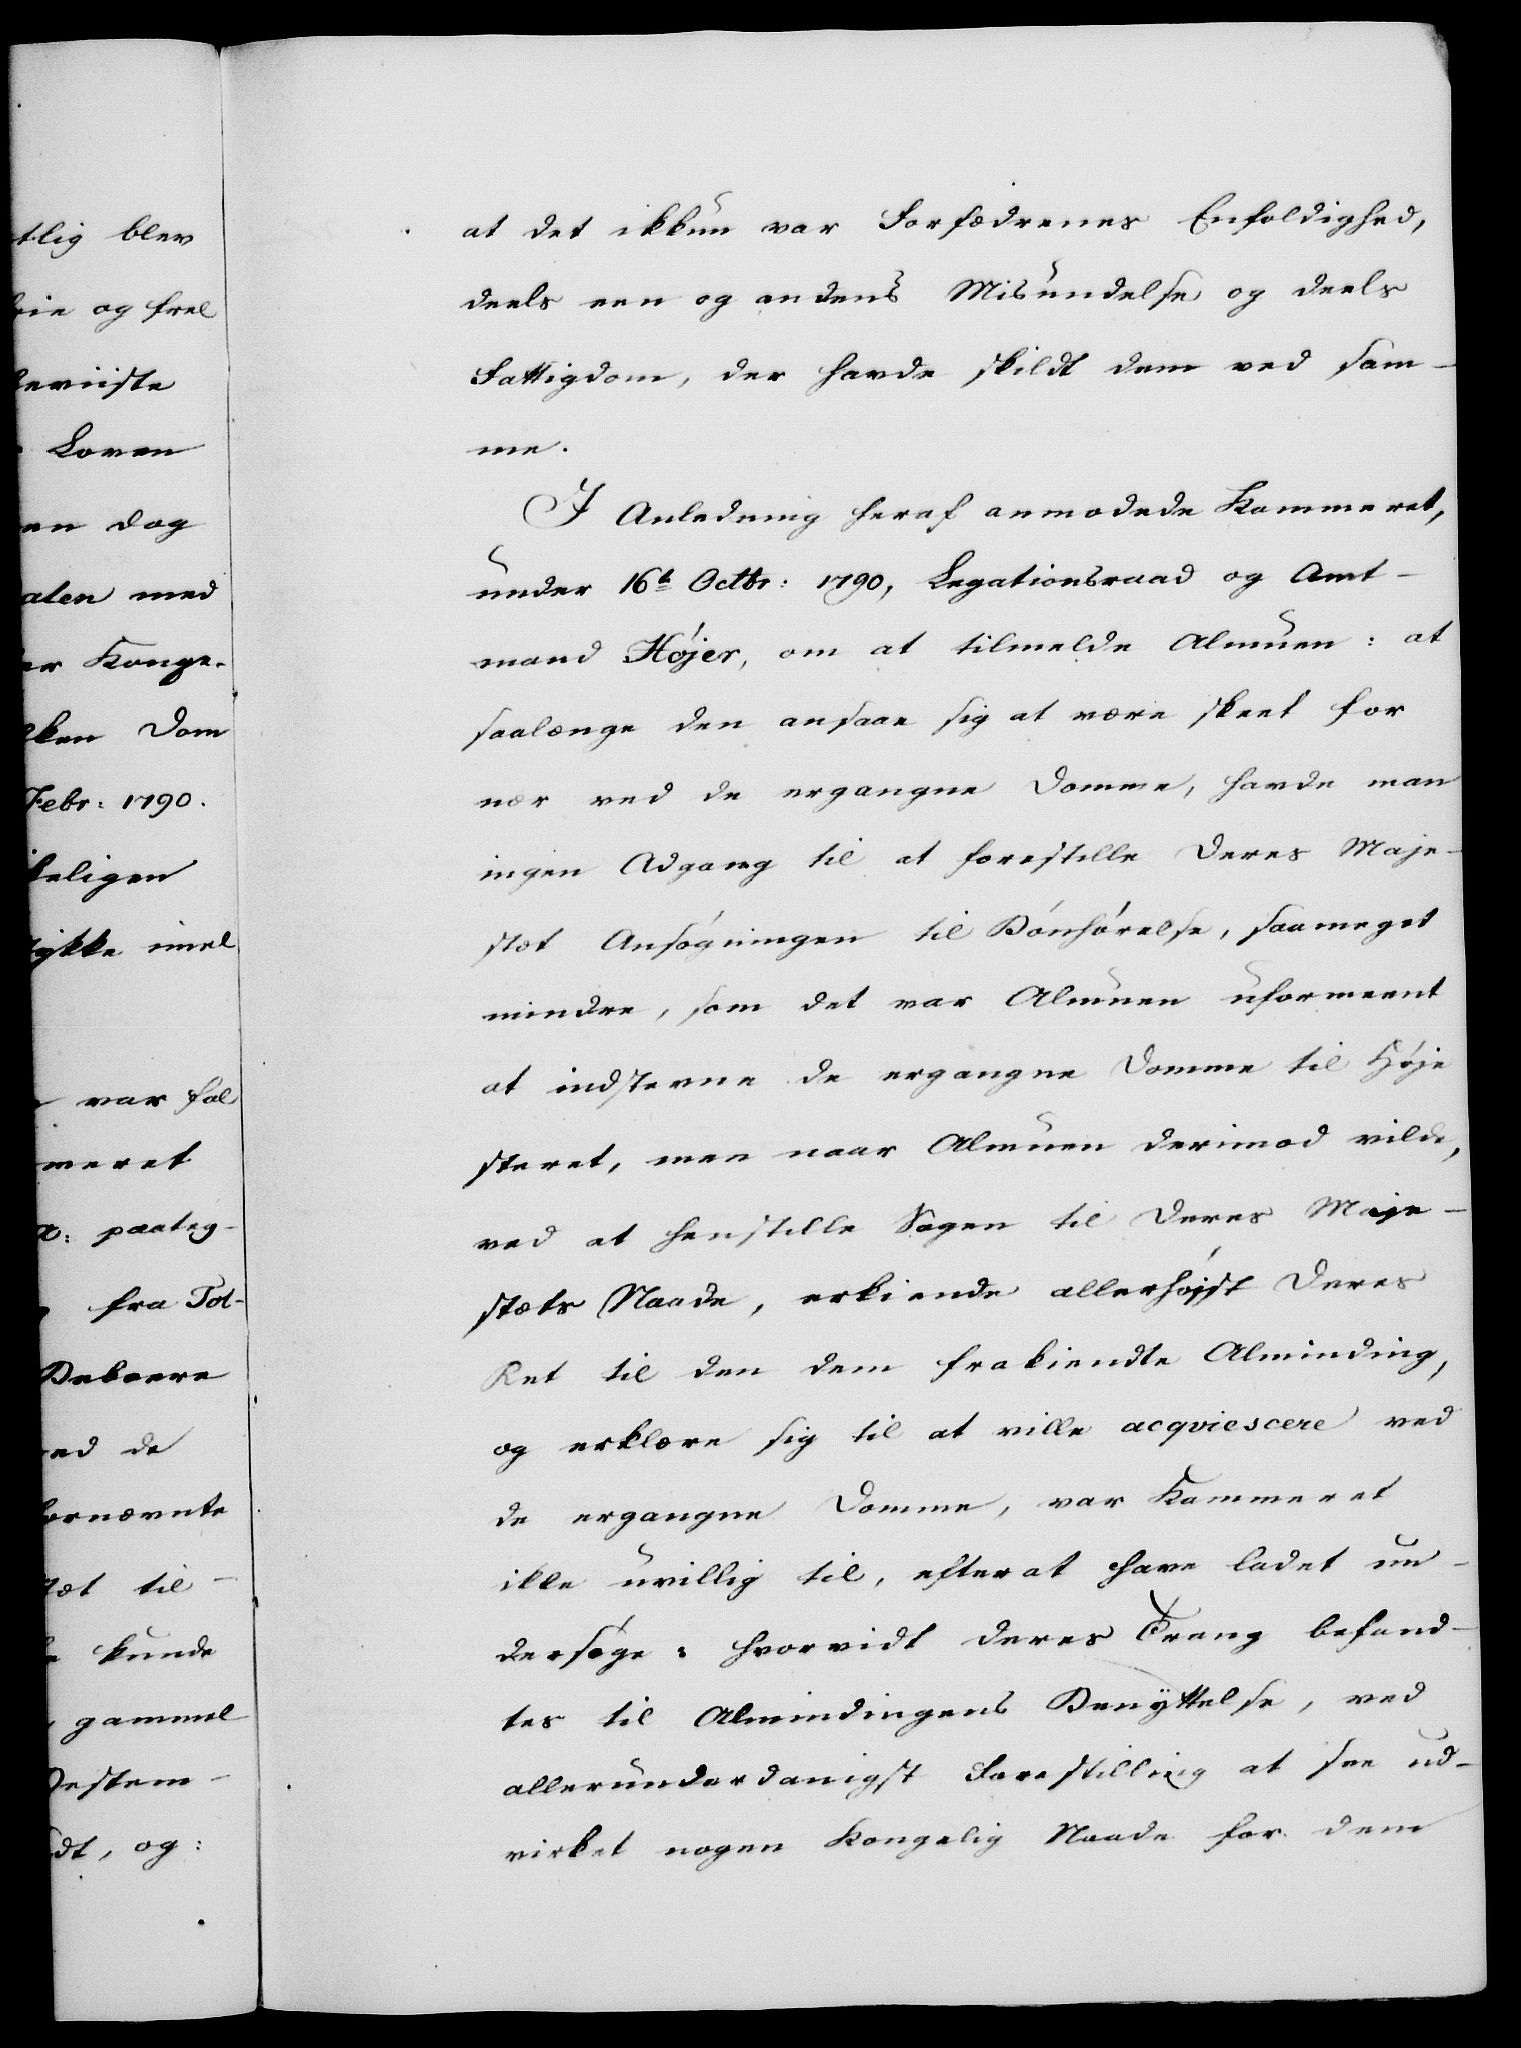 tlig blev
og frel
beviiste
Loven
en dog
aten med
er Konge-
lken Dom
Febr: 1790.
keligen
ykke imel
var fal
meret
paateg-
fra Tot-
Beboere
ed de
fornævnte
til
kunde
gammel
estem-
dt, og:
at det ikkun var Forfædrenes Enfoldighed,
deels een og andens Misundelse og deels
Fattigdom, der havde skildt dem ved sam-
me.
I Anledning heraf anmodede Kammeret,
under 16t Octbr: 1790, Legationsraad og Amt-
mand Højer, om at tilmelde Almuen: at
saalænge den ansaae sig at være skeet for
nær ved de ergangne Domme, havde man
ingen Adgang til at forestille Deres Maje-
stæt Ansøgningen til Bønhørelse, saameget
mindre, som det var Almuen uformeent
at indstevne de ergangne Domme til Høje
steret, men naar Almuen derimod vilde,
ved at henstille Sagen til Deres Maje-
stæts Naade, erkiende allerhøjst Deres
Ret til den dem frakiendte Alminding,
og erklære sig til at ville acqviescere ved
de ergangne Domme, var Kammeret
ikke uvillig til, efter at have ladet un-
dersøge: hvorvidt deres Trang befand-
tes til Almindingens Benÿttelse, ved
allerunderdanigst Forestilling at see ud-
virket nogen Kongelig Naade for dem